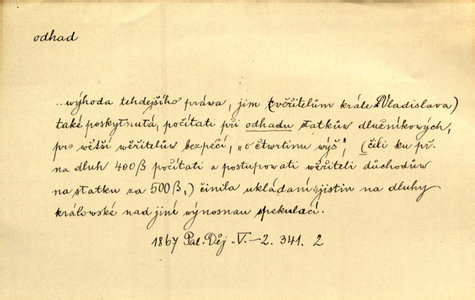 odhad
..výhoda tehdejšího práva, jim (věřitelům krále Vladislava)
také poskytnutá, počítati při odhadu statkův dlužníkových,
pro větší věřitelův bezpečí, o čtvrtinu výš' (čili ku př.
na dluh 400 ß počítati a postupovati věřiteli důchodův
na statku za 500 ß,) činila ukládaní jistin na dluhy
královské nad jiné výnosnau spekulací.
1867 Pal. Děj. V.—2. 341. 2